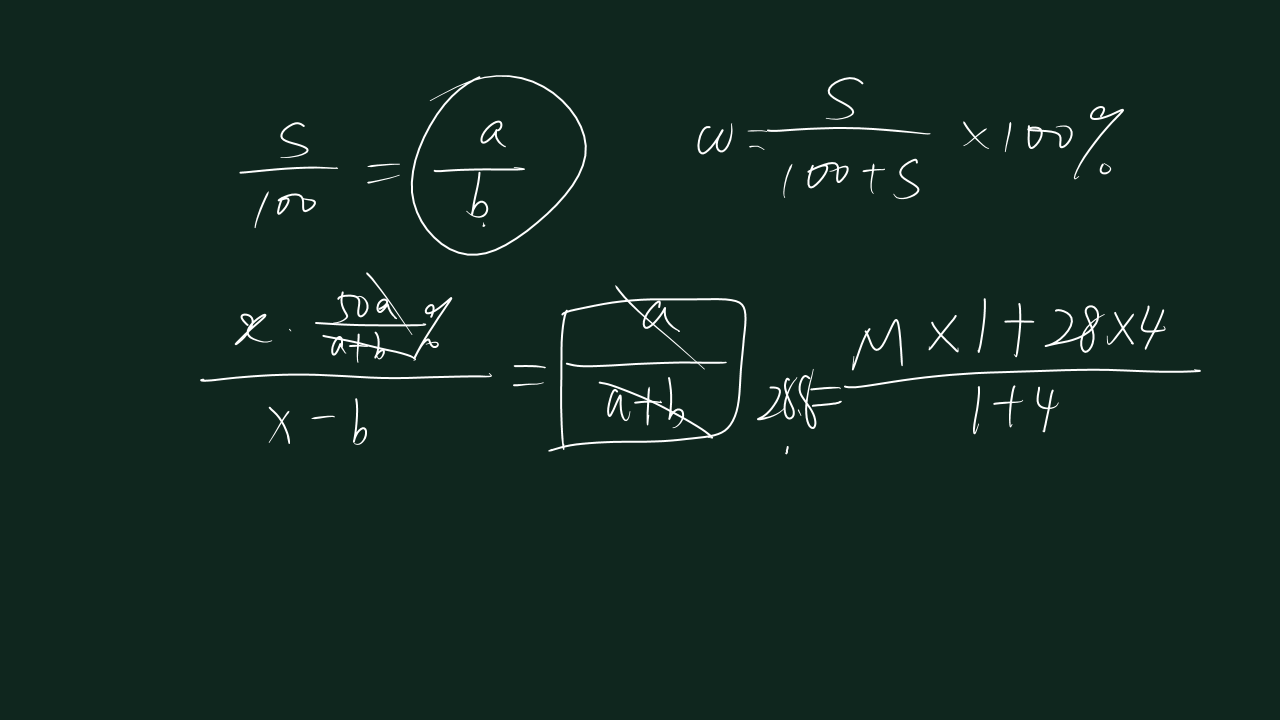 S/100 = a/b
ω = S/(100+S) × 100%
(x · 50a/(a+b)%)/(x-b) = a/(a+b)
28.8 = (M × 1 + 28 × 4)/(1+4)